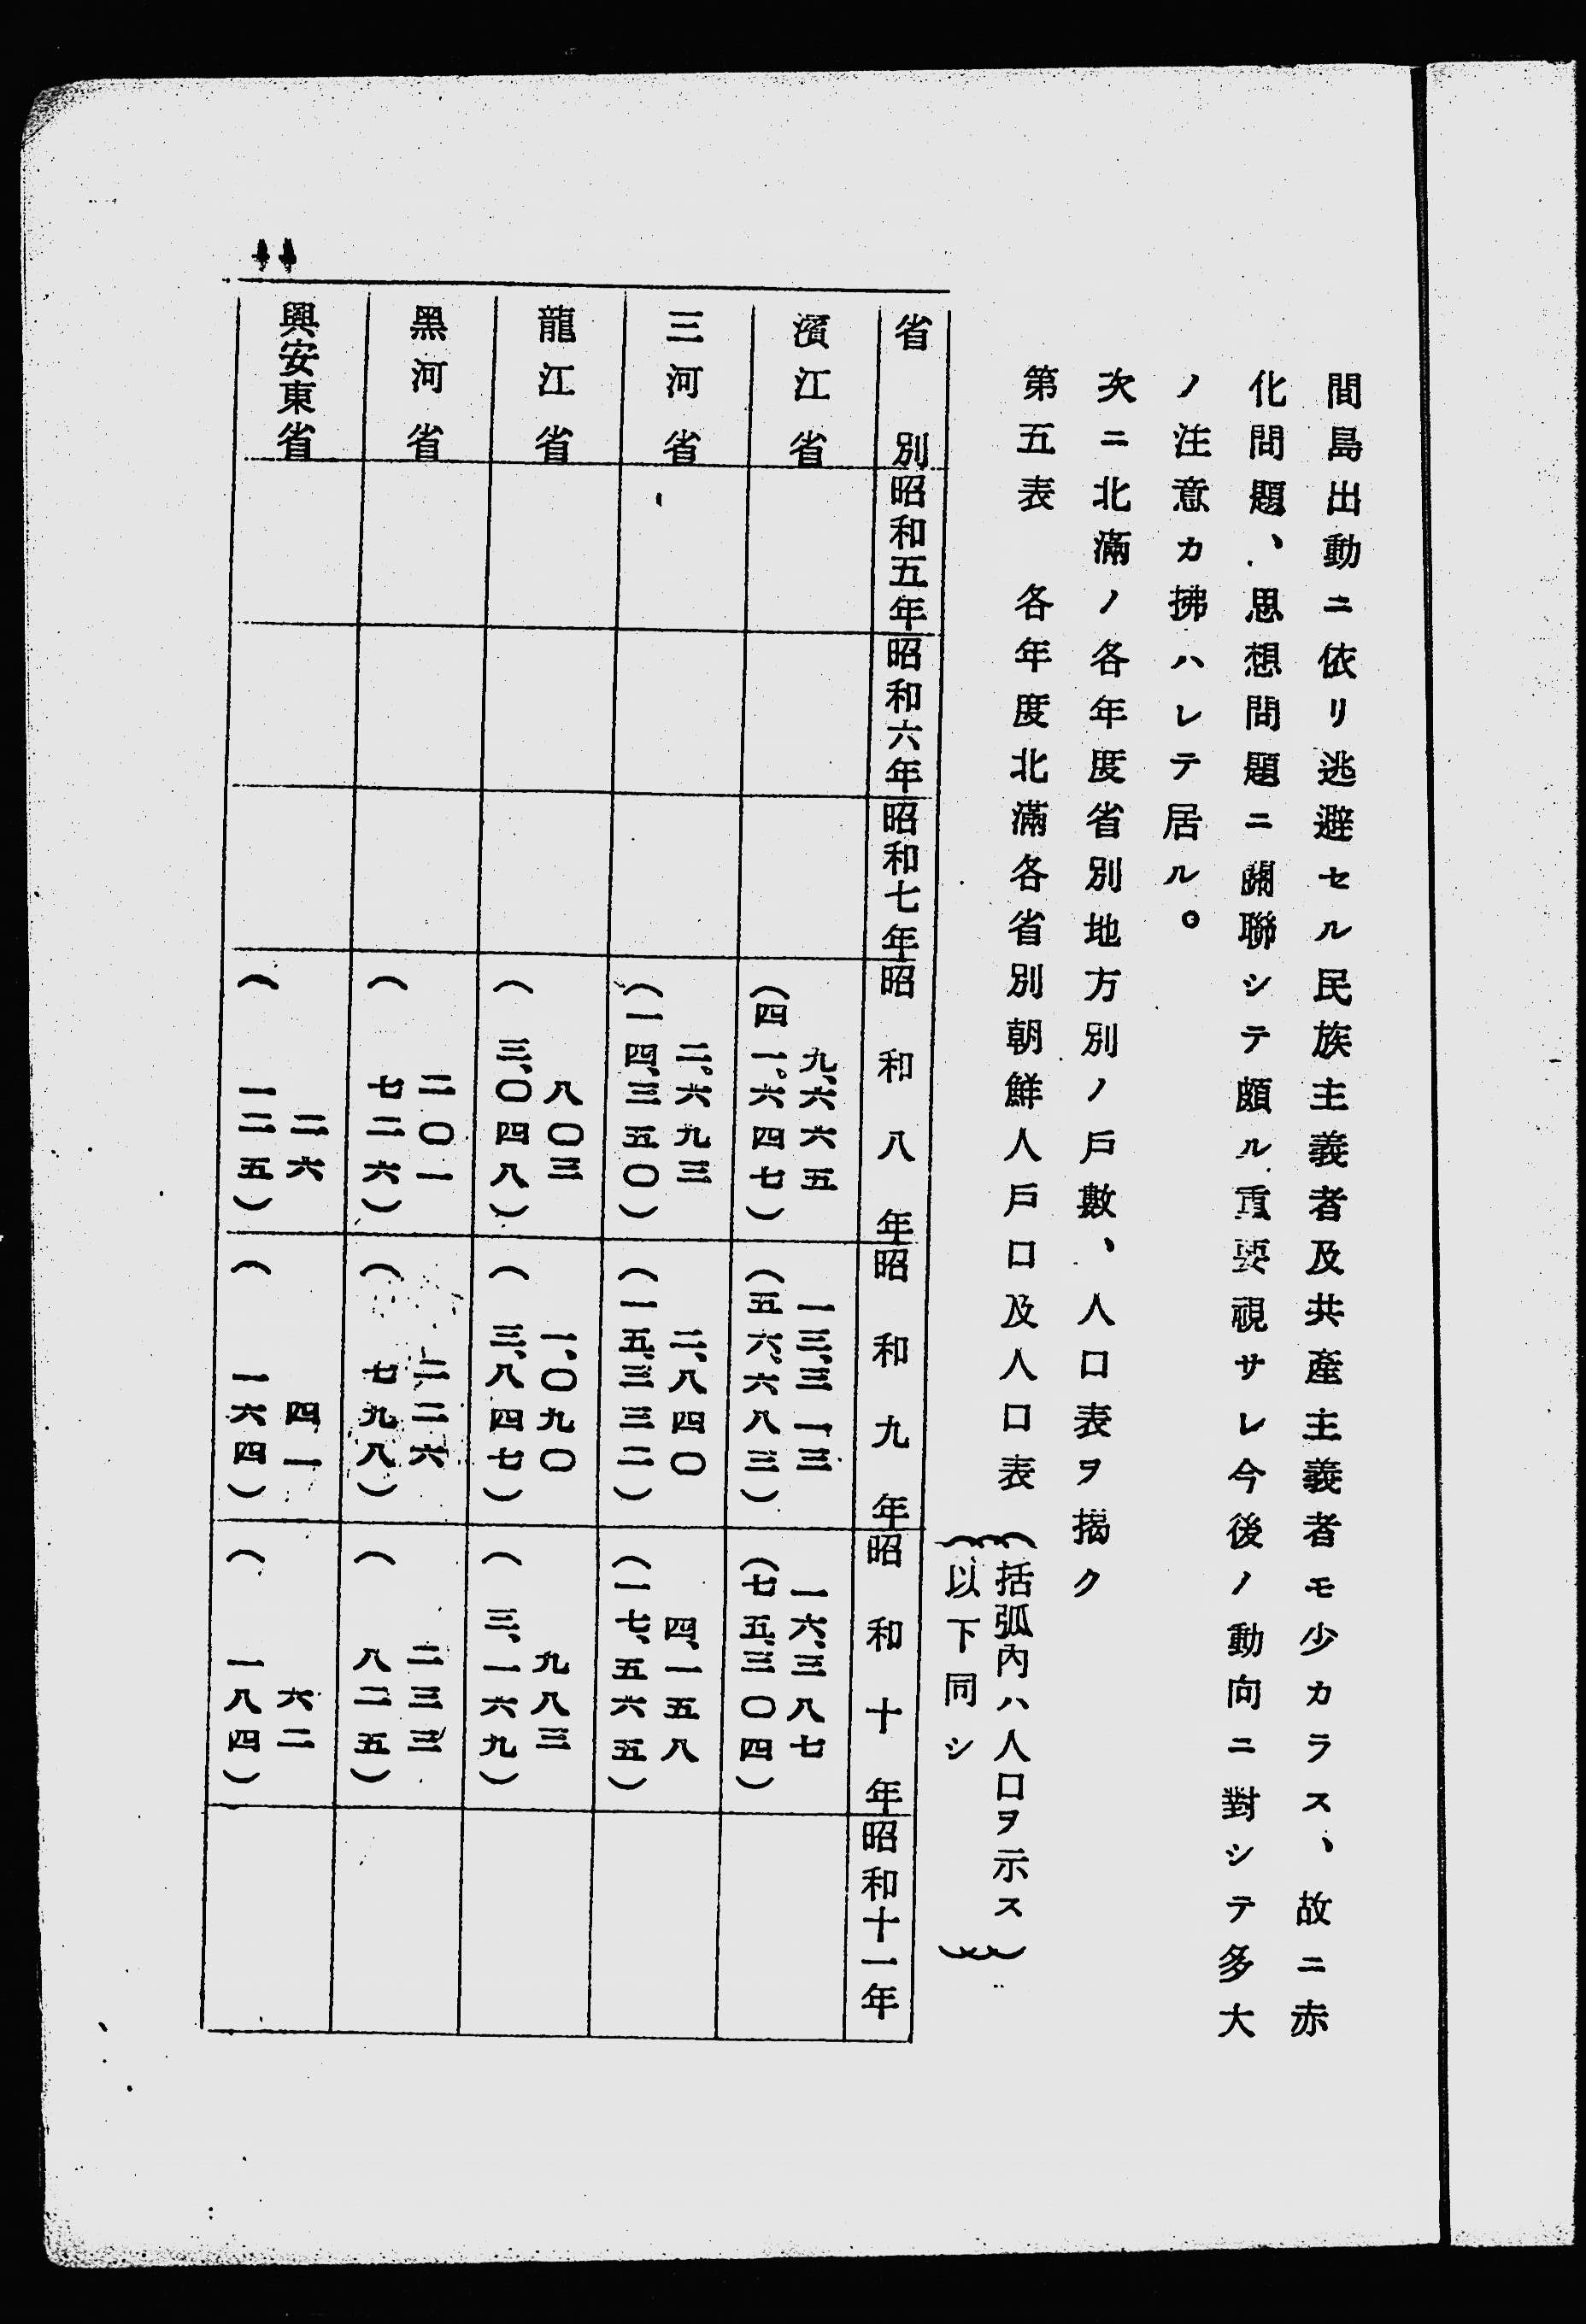 間島出動ニ依リ逃避セル民族主義者及共產主義者モ少カラス、故ニ赤
化問題、思想問題ニ關聯シテ頗ル重要視サレ今後ノ動向ニ對シテ多大
ノ注意カ拂ハレテ居ル。
次ニ北滿ノ各年度省別地方別ノ戶數、人口表ヲ揭ク
第五表　各年度北滿各省別朝鮮人戶口及人口表
（括弧內ハ人口ヲ示ス
以下同シ）
省別　昭和五年　昭和六年　昭和七年　昭和八年　昭和九年　昭和十年　昭和十一年
濱江省　九、六六五　一三、三一三　一六、三八七
（四一、六四七）　（五六、六八三）　（七五、三〇四）
三河省　二、六九三　二、八四〇　四、一五八
（一四、三五〇）　（一五、三三二）　（一七、五六五）
龍江省　八〇三　一、〇九〇　九八三
（三、〇四八）　（三、八四七）　（三、一六九）
黑河省　二〇一　二二六　二三三
（七二六）　（七九八）　（八二五）
興安東省　二六　四一　六二
（一二五）　（一六四）　（一八四）